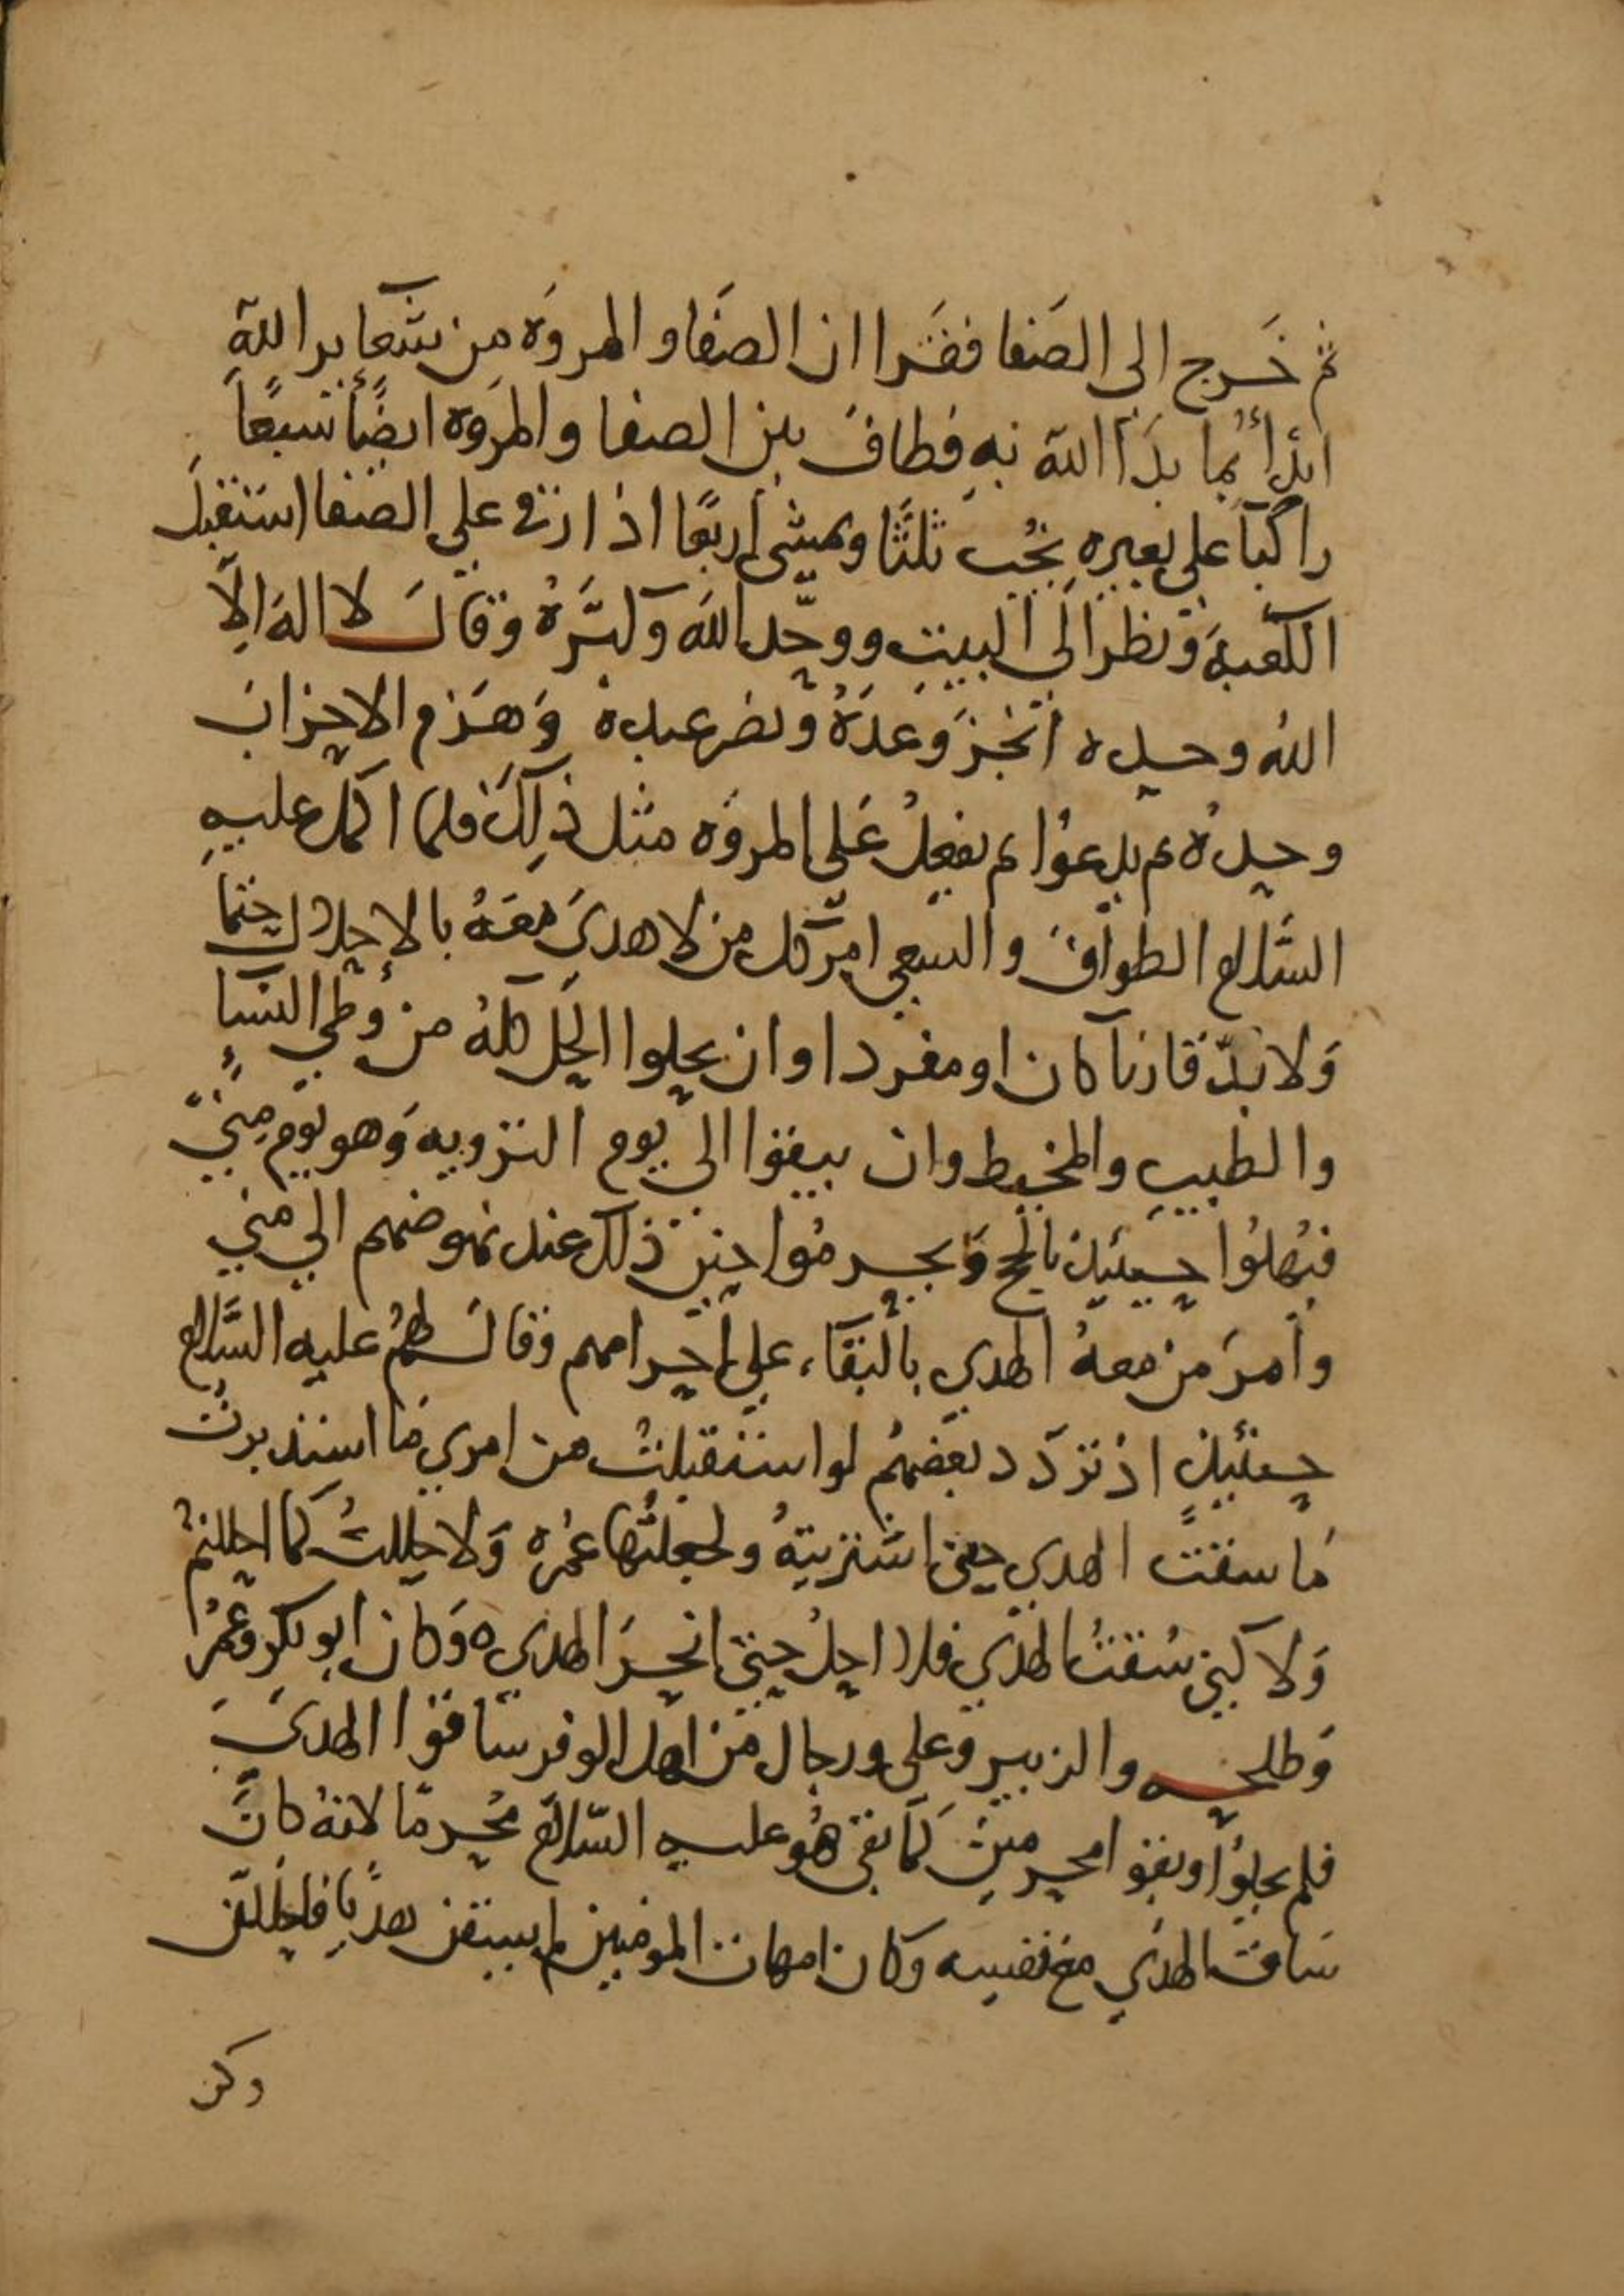 ثم خَرج الى الصَفا فقَرا ان الصَفا و المروَه من شَعآيرالله
ابدأ بما بَدَأ الله به فطاف بين الصفا والمروَه ايضًا سبعًا
راكبا على بعيره يخُب ثلثًا ويمشى اربعًا اذا رقي علي الصفا استقبلَ
الكعبة ونظر الَى البيت ووحّد الله وكبَّرهُ وقالَ لا اله الّا
الله وحده انجزَ وَعدَهُ ونصر عبده وَهَزم الاحزابَ
وحدُه ثم يدعُوا ثم يفعلُ عَلي المروَه مثل ذلِكَ فلما اكمل عليهِ
السَّلام الطوافَ والسعي امر كل من لا هديَ معهُ بالإحلال حتما
وَلا بدّ قارنا كان او مفردا وان يحلوا الحِل كلهُ من وَطي النسَآ
والطيبِ والمخيط وان يبقوا الي يوم الترويه وَهو يوم مِنيّ
فيُهلوُا حينيئذ بالحج وَيحرمُوا حين ذلك عند نهوضهم الي مني
وأمرَ من معهُ الهدي بالبقآء علي احرامهم وقال لهمُ عليه السَّلام
حينئيذٍ اذ تردّد بعَضهُم لو استقبلتُ من امري مَا استدبرت
مَا سقتُ الهدي حتي اشتريتهُ ولجعلتُها عُمره وَلا حللتُ كما احللتم
وَلا كني سُقتُ الهدي فلا احلُ حتي انحرَ الهدي ه وَكان ابو بكر وعُمرُ
وَطلحـه والزبير وعلي ورجال من اهل الوفر ساقوا الهديَ
فلم يحلوُا وبقوا محرمينَ كما بقي هُو عليـه السّلام مُحرمًا لانهُ كانَ
سَاقَ الهدي مع نفسِه وَكان امهات المومنين لم يسقن هديًا فاحللن
وكن